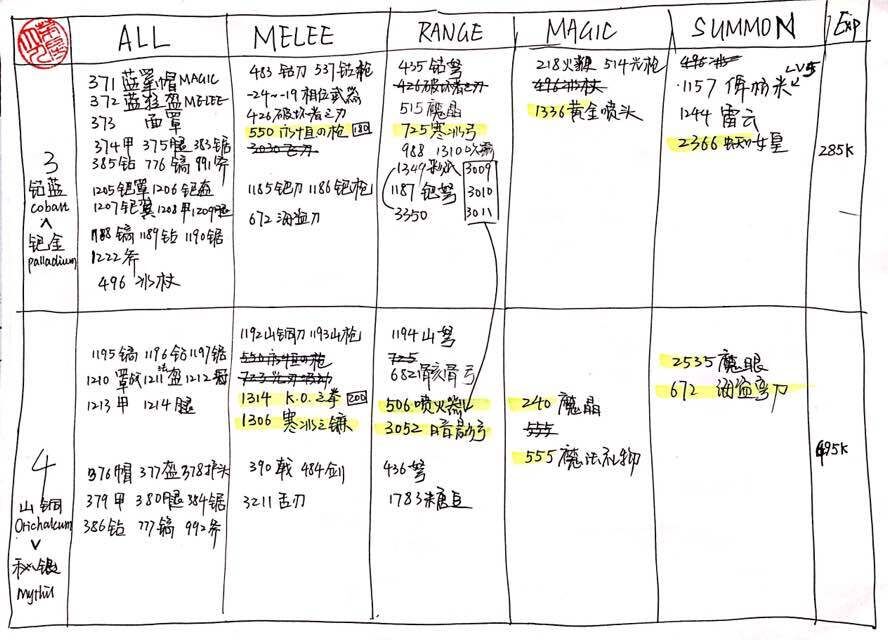 ALL
MELEE
RANGE
MAGIC
SUMMON
Exp
3
钴蓝
cobalt
钯金
palladium
371 蓝罩帽 MAGIC
372 蓝 盔 MELEE
373 面罩
374甲 375腿 383锯
385钻 776镐 991斧
1205钯罩 1206钯盔
1207钯翼 1208甲 1209腿
1188镐 1189钻 1190锯
1222斧
496 冰杖
483 钴刀 537钴枪
-24~-19相位武器
426破坏者之刃
550 的枪 180
3030飞刀
1185钯刀 1186钯枪
672 海盗刀
435钴弩
426破坏者之刃
515魔晶
725寒冰弓
988 1310
1349
1187 钯弩
3350
3009
3010
3011
218火鞭 514光枪
496冰杖
1336黄金喷头
496冰
LV5
1157 俾格米
1244 雷云
2366 女皇
285K
4
山铜
Orichalcum
秘银
Mythril
1195镐 1196钻 1197锯
1210 罩战 1211法盔 1212
1213甲 1214腿
376帽 377盔 378护头
379甲 380腿 384锯
386钻 777镐 992斧
1192山铜刀 1193山枪
550 的枪
723光刃
1314 K.O.之拳 200
1306 寒冰之镰
390戟 484剑
3211舌刀
1194山弩
725
682骸骨弓
506喷火器
3052暗影弓
436弩
1783糖豆
240魔晶
555
555魔法礼物
2535魔眼
672 海盗弯刀
495K